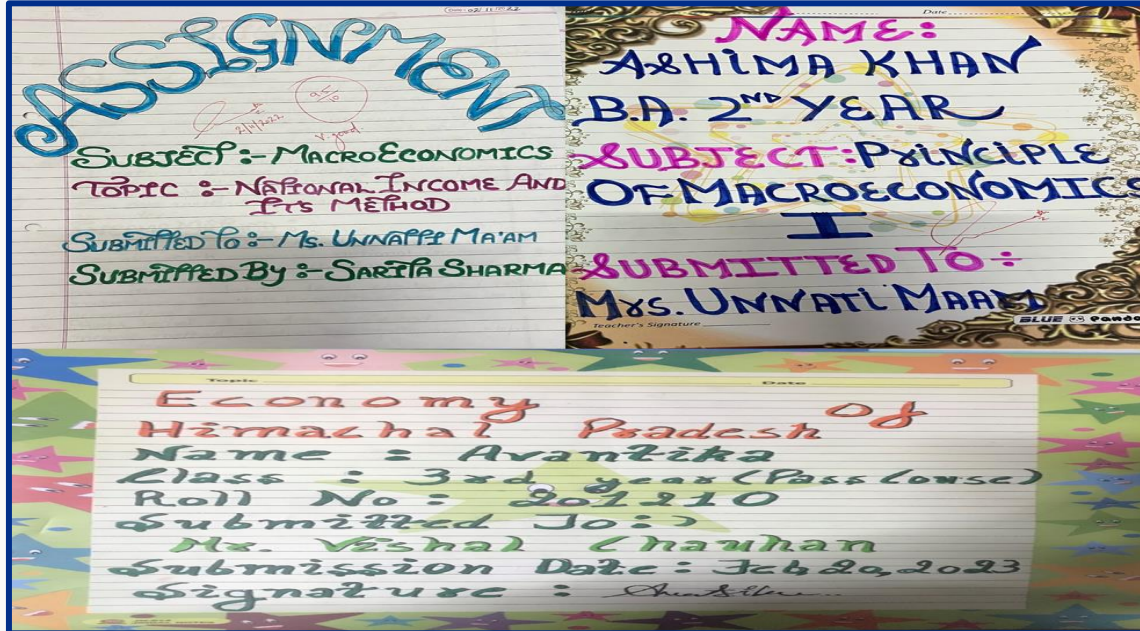 Date : 02/11/2022
ASSIGNMENT
2/11/2022
9.5/10
V. good
SUBJECT :- MACROECONOMICS
TOPIC :- NATIONAL INCOME AND
ITS METHOD
SUBMITTED TO :- MS. UNNATTI MA'AM
SUBMITTED BY :- SARITA SHARMA
Date
NAME:
ASHIMA KHAN
B.A. 2ND YEAR
SUBJECT: PRINCIPLE
OF MACROECONOMICS
I
SUBMITTED TO :-
Mrs. UNNATI MAAM
Teacher's Signature
BLUE Panda
Topic Date
Economy Of
Himachal Pradesh
Name : Avantika
Class : 3rd year (Pass Couse)
Roll No : 201210
Submitted To :
Mr. Vishal Chauhan
Submission Date : Feb, 20, 2023
Signature :